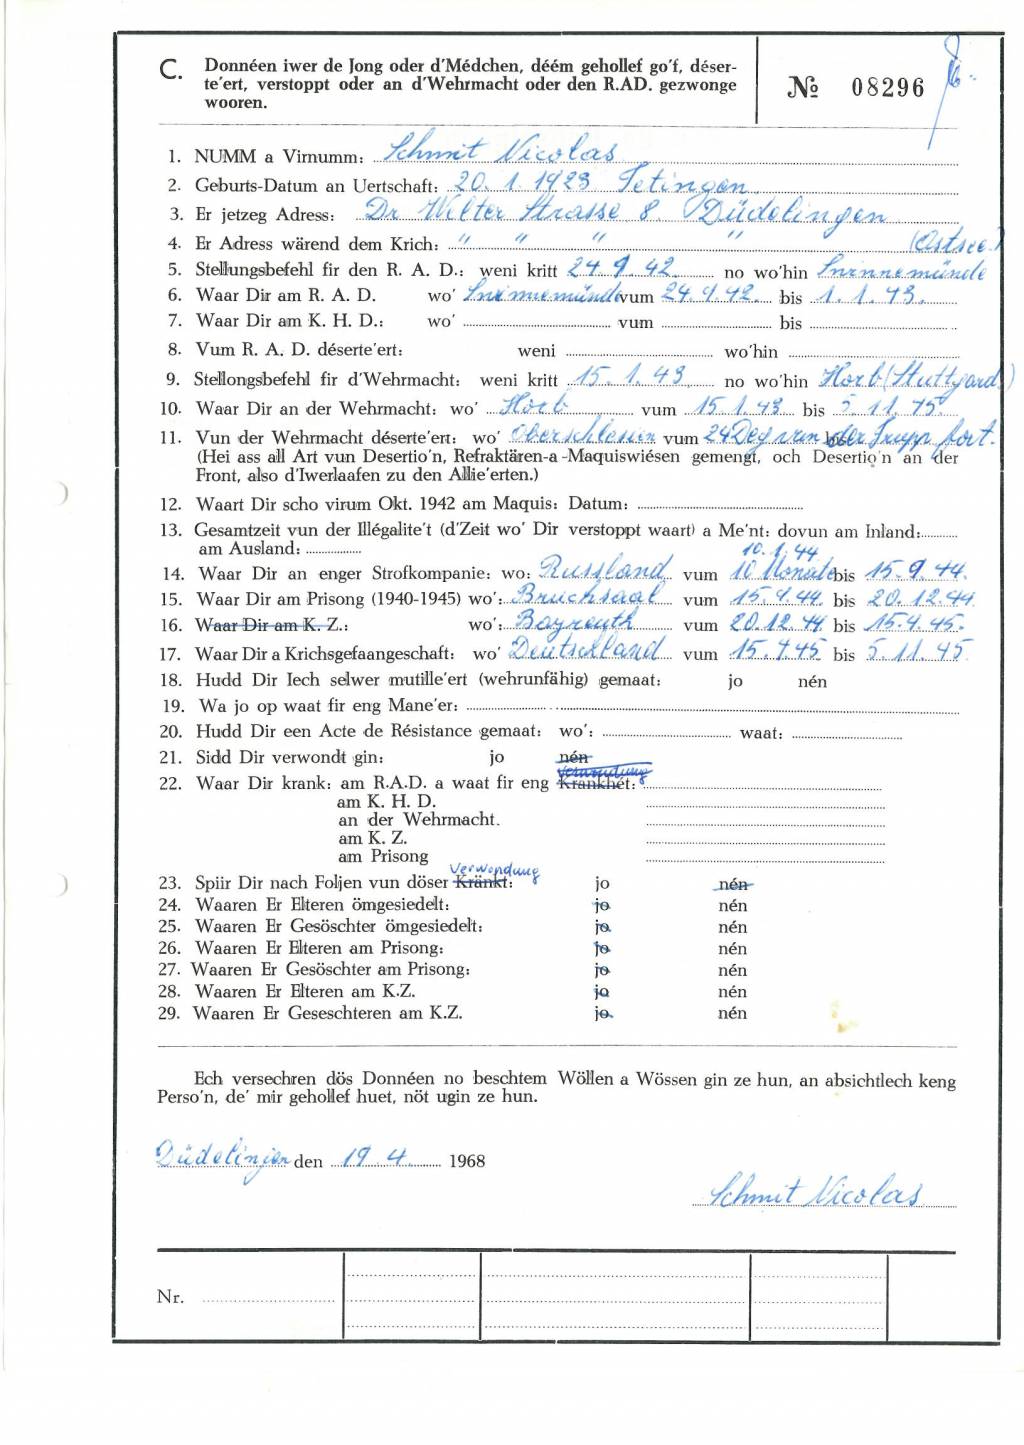 C. Donnéen iwer de Jong oder d'Médchen, déém gehollef go'f, déser-
te'ert, verstoppt oder an d'Wehrmacht oder den R.AD. gezwonge
wooren.
№ 08296
1. NUMM a Virnumm: Schmit Nicolas
2. Geburts-Datum an Uertschaft: 20. 1. 1923 Tetingen
3. Er jetzeg Adress: Dr Welter Strasse 8. Düdelingen
4. Er Adress wärend dem Krich: " " " " (Ostsee.)
5. Stellungsbefehl fir den R. A. D.: weni kritt 24. 9. 42. no wo'hin Swinnemünde
6. Waar Dir am R. A. D. wo' Swinnemünde vum 24. 9. 42. bis 1. 1. 43.
7. Waar Dir am K. H. D.: wo' vum bis
8. Vum R. A. D. déserte'ert: weni wo'hin
9. Stellongsbefehl fir d'Wehrmacht: weni kritt 15. 1. 43. no wo'hin Horb (Stuttgard.)
10. Waar Dir an der Wehrmacht: wo' Horb vum 15. 1. 43 bis 5. 11. 45.
11. Vun der Wehrmacht déserte'ert: wo' Oberschlesien vum 24 Deg van der Trupp fort.
(Hei ass all Art vun Desertio'n, Refraktären-a-Maquiswiésen gemengt, och Desertio'n an der
Front, also d'Iwerlaafen zu den Allie'erten.)
12. Waart Dir scho virum Okt. 1942 am Maquis: Datum:
13. Gesamtzeit vun der Illégalite't (d'Zeit wo' Dir verstoppt waart) a Me'nt: dovun am Inland:
am Ausland: 10. 1. 44
14. Waar Dir an enger Strofkompanie: wo: Russland vum 10 Monate bis 15. 9. 44.
15. Waar Dir am Prisong (1940-1945) wo': Bruchsaal vum 15. 9. 44. bis 20. 12. 44
16. Waar Dir am K. Z.: wo': Bayreuth vum 20. 12. 44 bis 15. 4. 45.
17. Waar Dir a Krichsgefaangeschaft: wo' Deutschland vum 15. 4. 45 bis 5. 11. 45.
18. Hudd Dir Iech selwer mutille'ert (wehrunfähig) gemaat: jo nén
19. Wa jo op waat fir eng Mane'er:
20. Hudd Dir een Acte de Résistance gemaat: wo': waat:
21. Sidd Dir verwondt gin: jo nén
Verwondung
22. Waar Dir krank: am R.A.D. a waat fir eng Krankhét:
am K. H. D.
an der Wehrmacht.
am K. Z.
am Prisong
Verwondung
23. Spiir Dir nach Foljen vun döser Kränkt: jo nén
24. Waaren Er Elteren ömgesiedelt: jo nén
25. Waaren Er Gesöschter ömgesiedelt: jo nén
26. Waaren Er Elteren am Prisong: jo nén
27. Waaren Er Gesöschter am Prisong: jo nén
28. Waaren Er Elteren am K.Z. jo nén
29. Waaren Er Geseschteren am K.Z. jo nén
Ech versechren dös Donnéen no beschtem Wöllen a Wössen gin ze hun, an absichtlech keng
Perso'n, de' mir gehollef huet, nöt ugin ze hun.
Düdelingen den 19. 4. 1968
Schmit Nicolas
Nr.